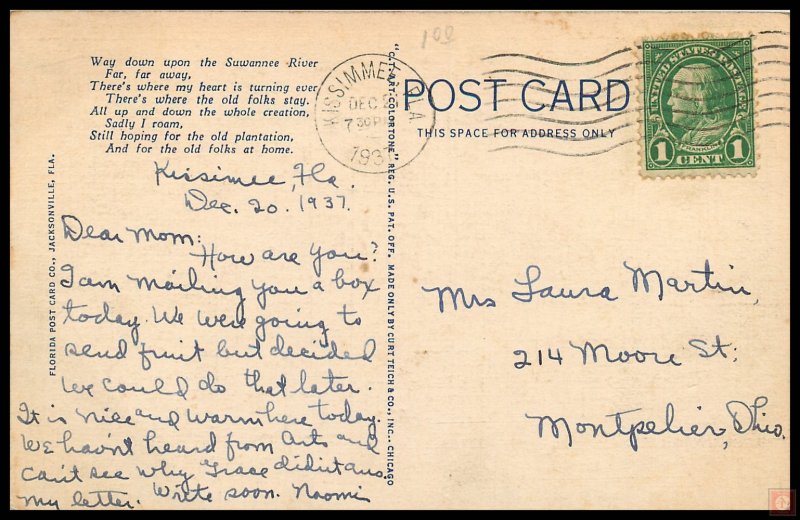 Way down upon the Suwannee River
Far, far away,
There's where my heart is turning ever
There's where the old folks stay.
All up and down the whole creation,
Sadly I roam,
Still hoping for the old plantation,
And for the old folks at home.
Kissimee, Fla.
Dec. 20. 1937.
Dear Mom:
How are you?
I am mailing you a box
today. We were going to
send fruit but decided
we could do that later.
It is nice and warm here today.
We havn't heard from Arts and
can't see why Grace didn't ans.
my letter. Write soon. Naomi
FLORIDA POST CARD CO., JACKSONVILLE, FLA.
"C.T. ART-COLORTONE" REG. U.S. PAT. OFF. MADE ONLY BY CURT TEICH & CO., INC., CHICAGO
1.00
KISSIMMEE
DEC
7 30 PM
193
POST CARD
THIS SPACE FOR ADDRESS ONLY
UNITED STATES POSTAGE
FRANKLIN
1 CENT 1
Mrs Laura Martin,
214 Moore St.
Montpelier, Ohio.